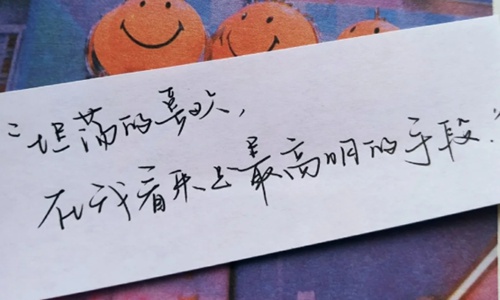 “坦荡的喜欢，
在我看来是最高明的手段”